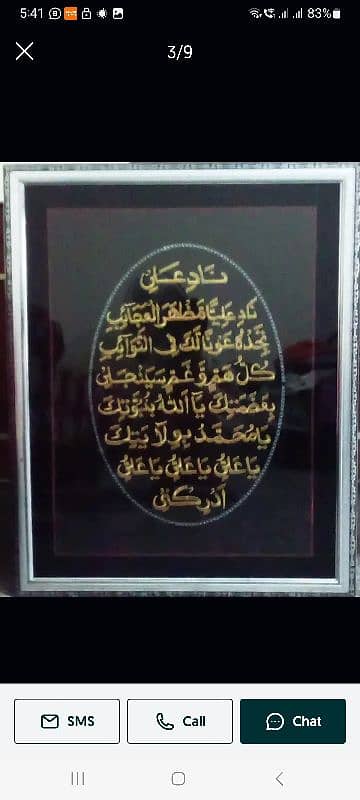 5:41
83%
3/9
نَادِ عَلِي
نَادِ عَلِيًّا مَظْهَرَ الْعَجَائِبِ
تَجِدْهُ عَوْنًا لَكَ فِي النَّوَائِبِ
كُلُّ هَمٍّ وَّ غَمٍّ سَيَنْجَلِي
بِعَظَمَتِكَ يَا اَللهُ بِنُبُوَّتِكَ
يَا مُحَمَّدُ بِوِلَايَتِكَ
يَا عَلِيُّ يَا عَلِيُّ يَا عَلِيُّ
اَدْرِكْنِي
SMS
Call
Chat